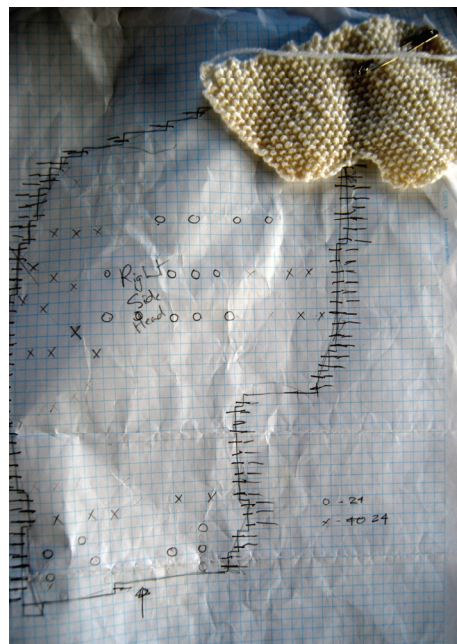 Right
Side
Head
o - 24
x - 40 24